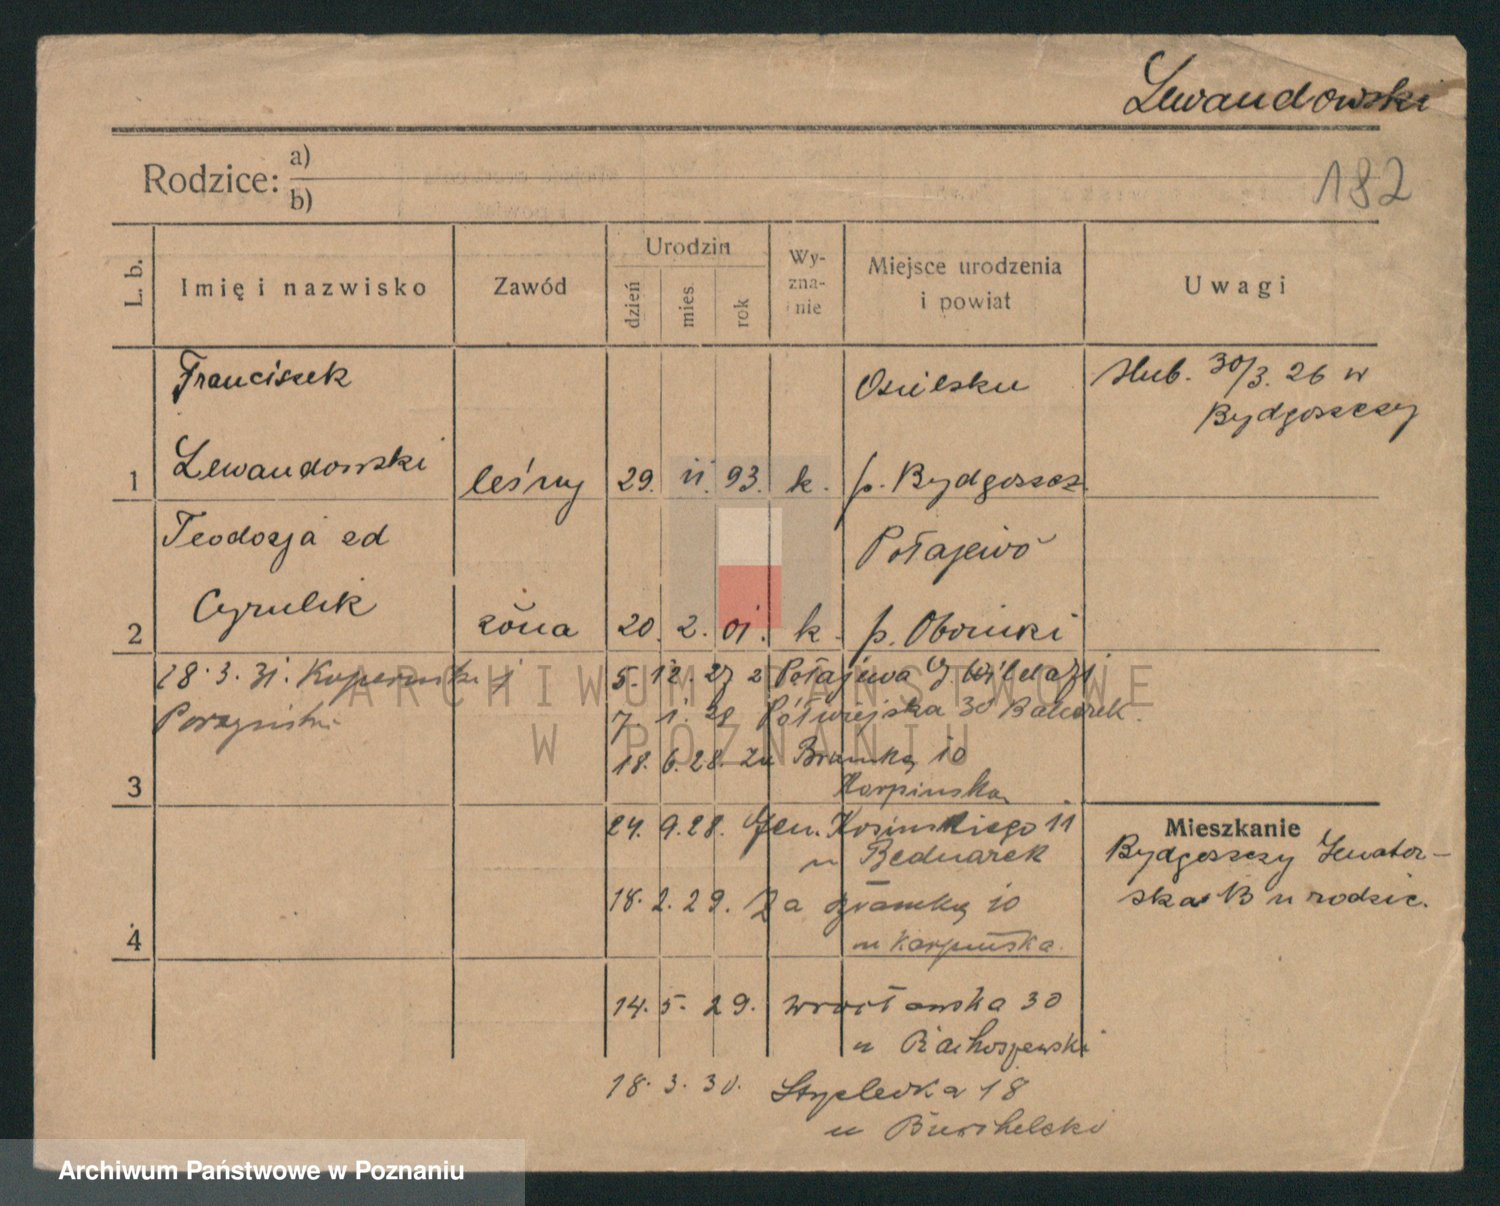 Lewandowski
Rodzice: a)
b)
182
L. b.
Imię i nazwisko
Zawód
Urodzin
dzień
mies
rok
Wy-
zna-
nie
Miejsce urodzenia
i powiat
Uwagi
Franciszek
Osielsku
Ślub. 30/3. 26 w
Bydgoszczy
1 Lewandowski leśny 29. 11. 93. k. p. Bydgoszcz
Teodozja zd
Połajewo
Cyrulik
2 żona 20. 2. 01. k. p. Oborniki
28. 3. 31.
5. 12. 27 z Połajewa
7. 1. 28 Półwiejska 30
18. 6. 28. Za Bramką 10
Karpińska
3
24. 9. 28. Gen. Kosińskiego 11
u Bednarek
Mieszkanie
Bydgoszczy Senator-
ska 13 u rodzic.
18. 2. 29. Za Bramką 10
u Karpińska.
4
14. 5. 29. Wrocławska 30
u
18. 3. 30. 18
u
ARCHIWUM PAŃSTWOWE
W POZNANIU
Archiwum Państwowe w Poznaniu